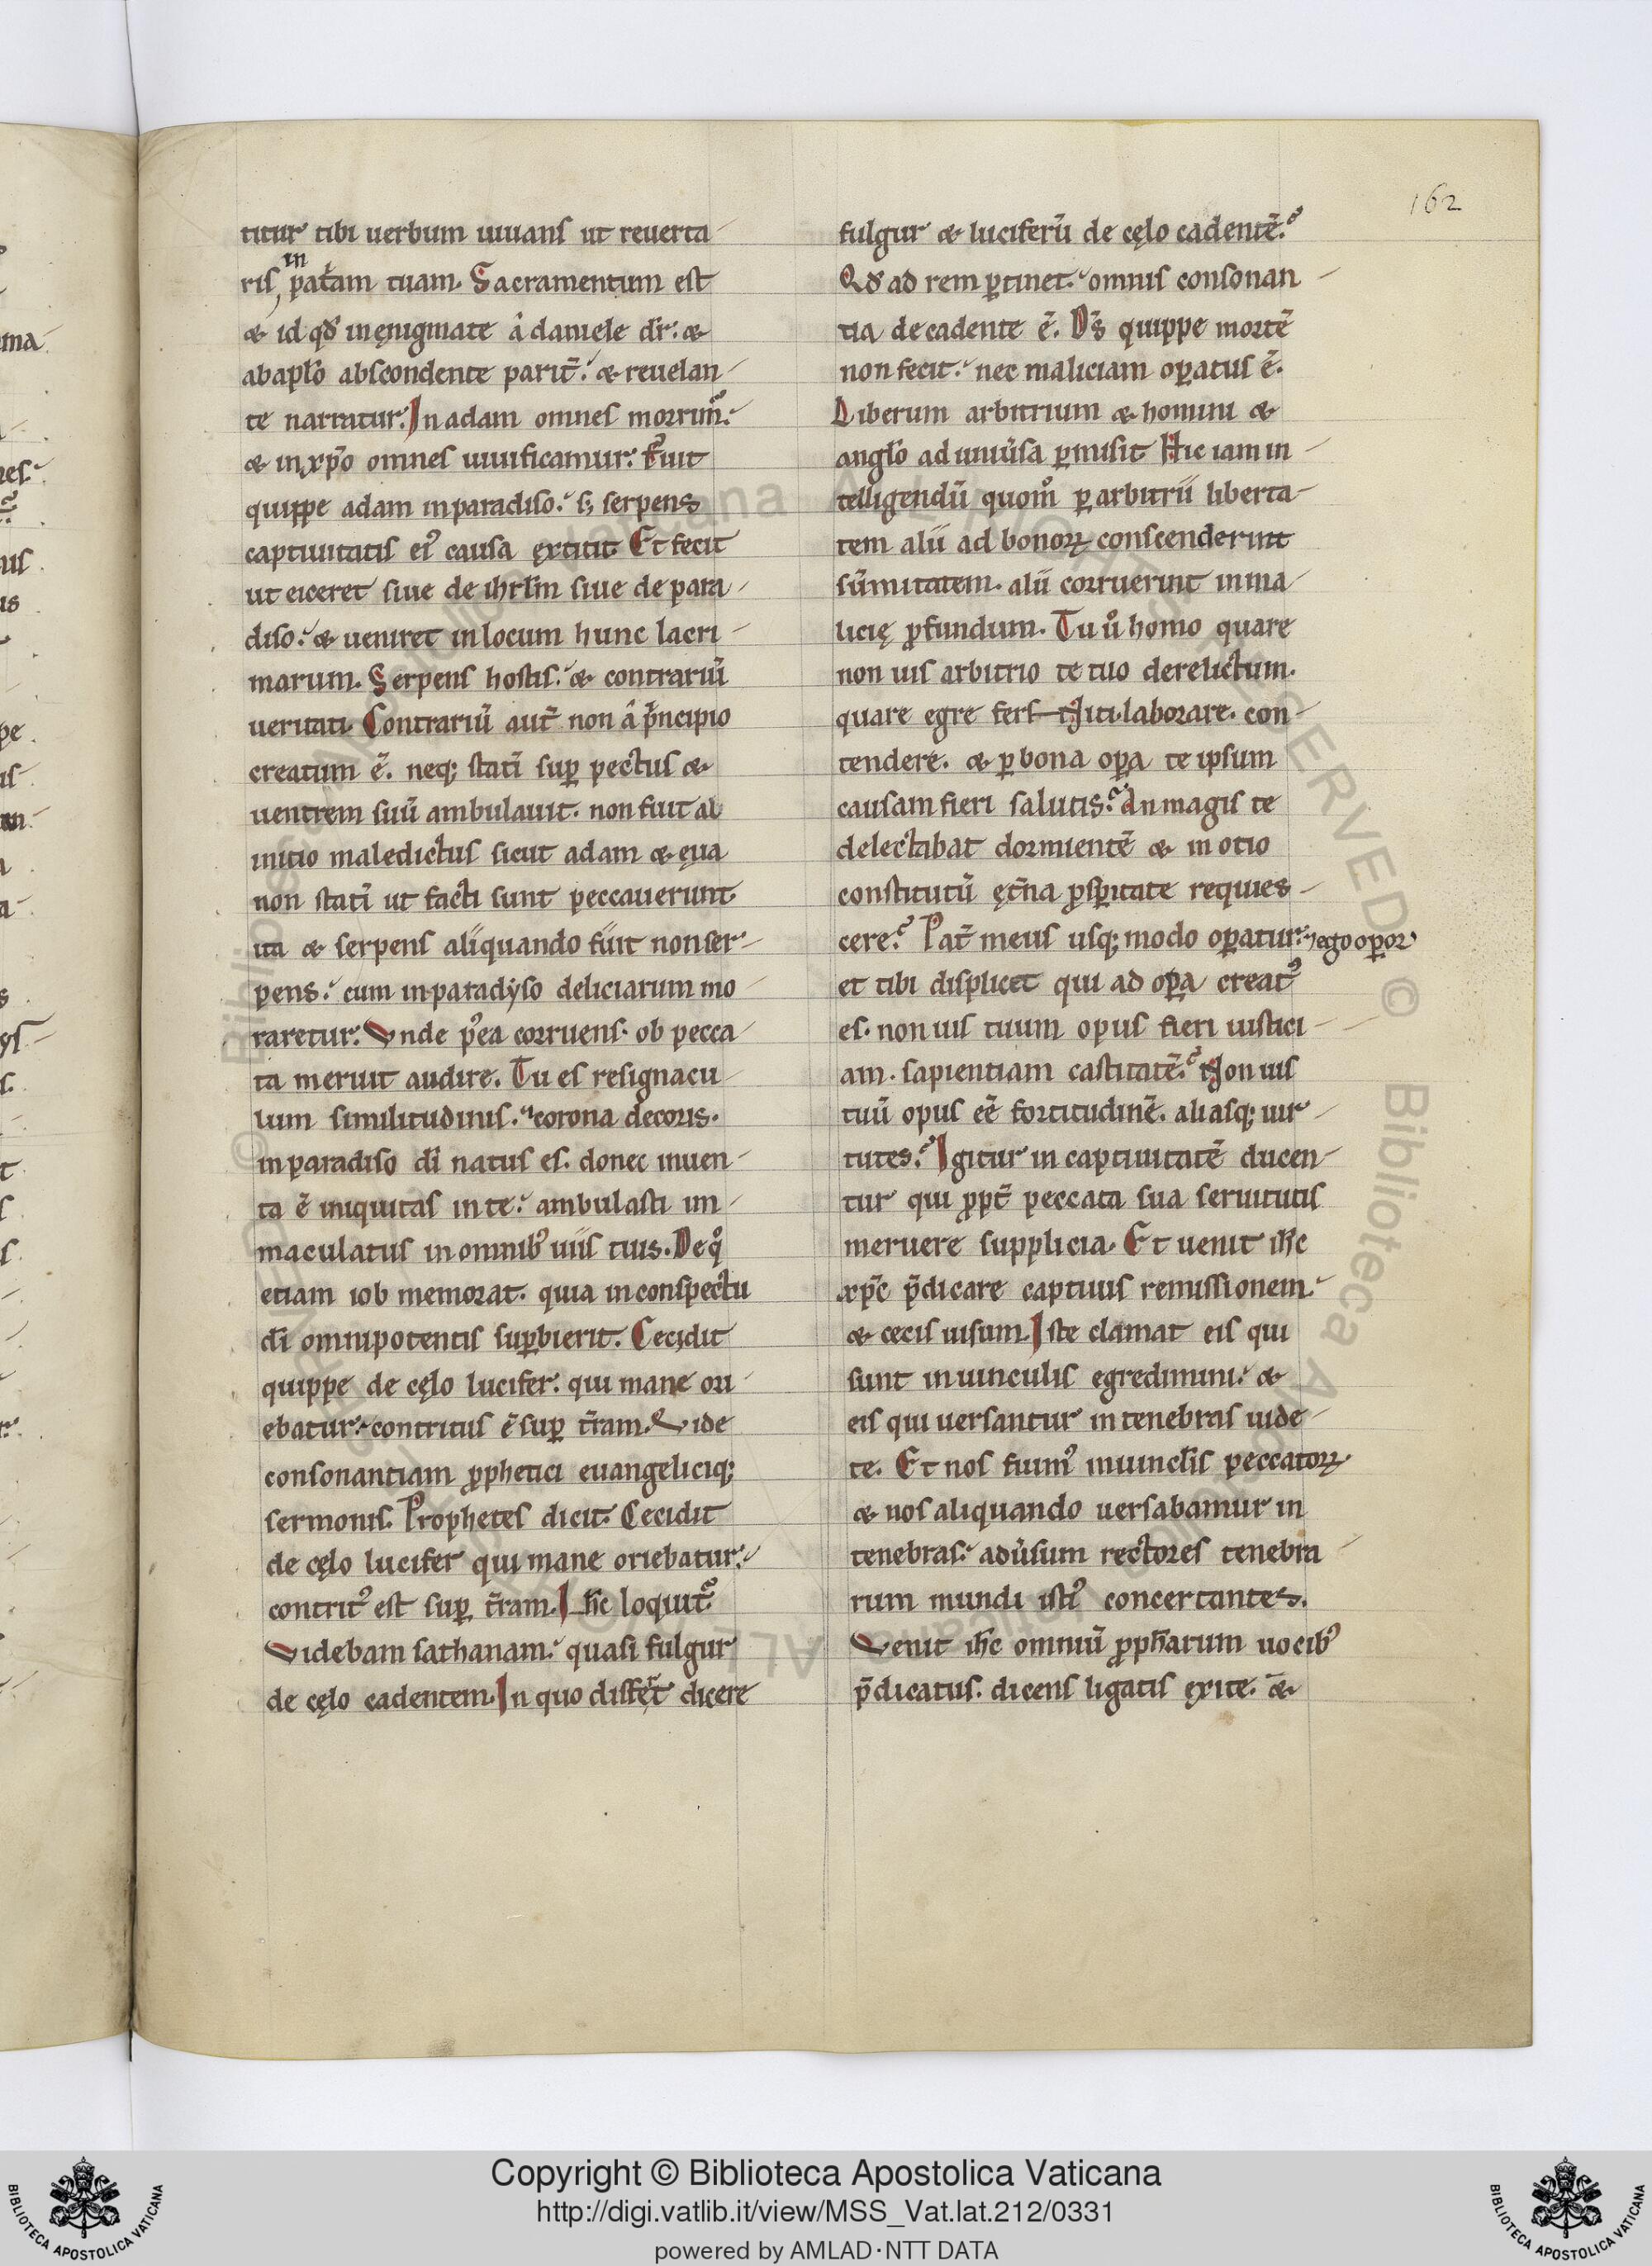 162
titur tibi uerbum uiuans ut reuerta
ris in pat̄am tuam. Sacramentum est
& id qđ in ęnigmate a daniele dr̄. &
ab aplo̅ abscondente parit̄. & reuelan
te narratur. In adam omnes morrim᷒.
& in xp̅o omnes uiuificamur. Fuit
quippe adam in paradiso. s; serpens
captiuitatis ei᷒ causa extitit Et fecit
ut eiceret siue de ihrl̅m siue de para
diso. & ueniret in locum hunc lacri
marum. Serpens hostis. & contrariū
ueritati. Contrariū aut̄ non a p̅ncipio
creatum ē. neq; stati̅ sup̱ pectus &
uentrem suū ambulauit. non fuit ab
initio maledictus sicut adam & ęua
non stati̅ ut facti sunt peccauerunt
ita & serpens aliquando fuit non ser
pens. cum in paradyso deliciarum mo
raretur. Vnde p᷒ea corruens. ob pecca
ta meruit audire. Tu es resignacu
lum similitudinis. corona decoris.
in paradiso di̅ natus es. donec inuen
ta ē iniquitas in te. ambulasti im
maculatus in omnib᷒ uiis tuis. De qͦ
etiam iob memorat. quia in conspectu
di̅ omnipotentis sup̱bierit. Cecidit
quippe de cęlo lucifer. qui mane ori
ebatur. contritus ē sup̱ t̄ram. Vide
consonantiam p̱phetici euangeliciq;
sermonis. Prophetes dicit. Cecidit
de cęlo lucifer qui mane oriebatur.
contrit᷒ est sup̱ t̄ram. Ih̅c loquit᷒.
Videbam sathanam. quasi fulgur
de cęlo cadentem. In quo differt̄ dicere
fulgur & luciferū de cęlo cadentē.
Qđ ad rem p̱tinet. omnis consonan
tia de cadente ē. D̅s quippe mortē
non fecit. nec maliciam op̱atus ē.
Liberum arbitrium & homini &
angl̅o ad uniu̅sa p̱misit Hic iam in
telligendū quomͦ p̱ arbitrii liberta
tem alii ad bonoꝝ conscenderint
su̅mitatem. alii corruerint in ma
licię p̱fundum. Tu uͦ homo quare
non uis arbitrio te tuo derelictum.
quare egre fers Niti. laborare. con
tendere. & p̱ bona op̱a te ipsum
causam fieri salutis. An magis te
delectabat dormientē & in otio
constitutū ęt̄na p̱sp̱itate requies
cere. Pat̄ meus usq; modo op̱atur. ⁊ ego op̱or
et tibi displicet qui ad op̱a creat᷒
es. non uis tuum opus fieri iustici
am. sapientiam castitatē. Non uis
tuū opus eē fortitudinē. aliasq; uir
tutes. Igitur in captiuitatē ducen
tur qui p̱pt̄ peccata sua seruitutis
meruere supplicia. Et uenit ih̅c
xp̅c p̅dicare captiuis remissionem
& cecis uisum. Iste clamat eis qui
sunt in uinculis egredimini. &
eis qui uersantur in tenebras uide
te. Et nos fuim᷒ in uincl̅is peccatoꝝ
& nos aliquando uersabamur in
tenebras. adu̅sum rectores tenebra
rum mundi isti᷒ concertantes.
Venit ih̅c omniū p̱ph̅arum uocib᷒
p̅dicatus. dicens ligatis exite. &
Copyright © Biblioteca Apostolica Vaticana
http://digi.vatlib.it/view/MSS_Vat.lat.212/0331
powered by AMLAD·NTT DATA
BIBLIOTECA APOSTOLICA VATICANA
BIBLIOTECA APOSTOLICA VATICANA